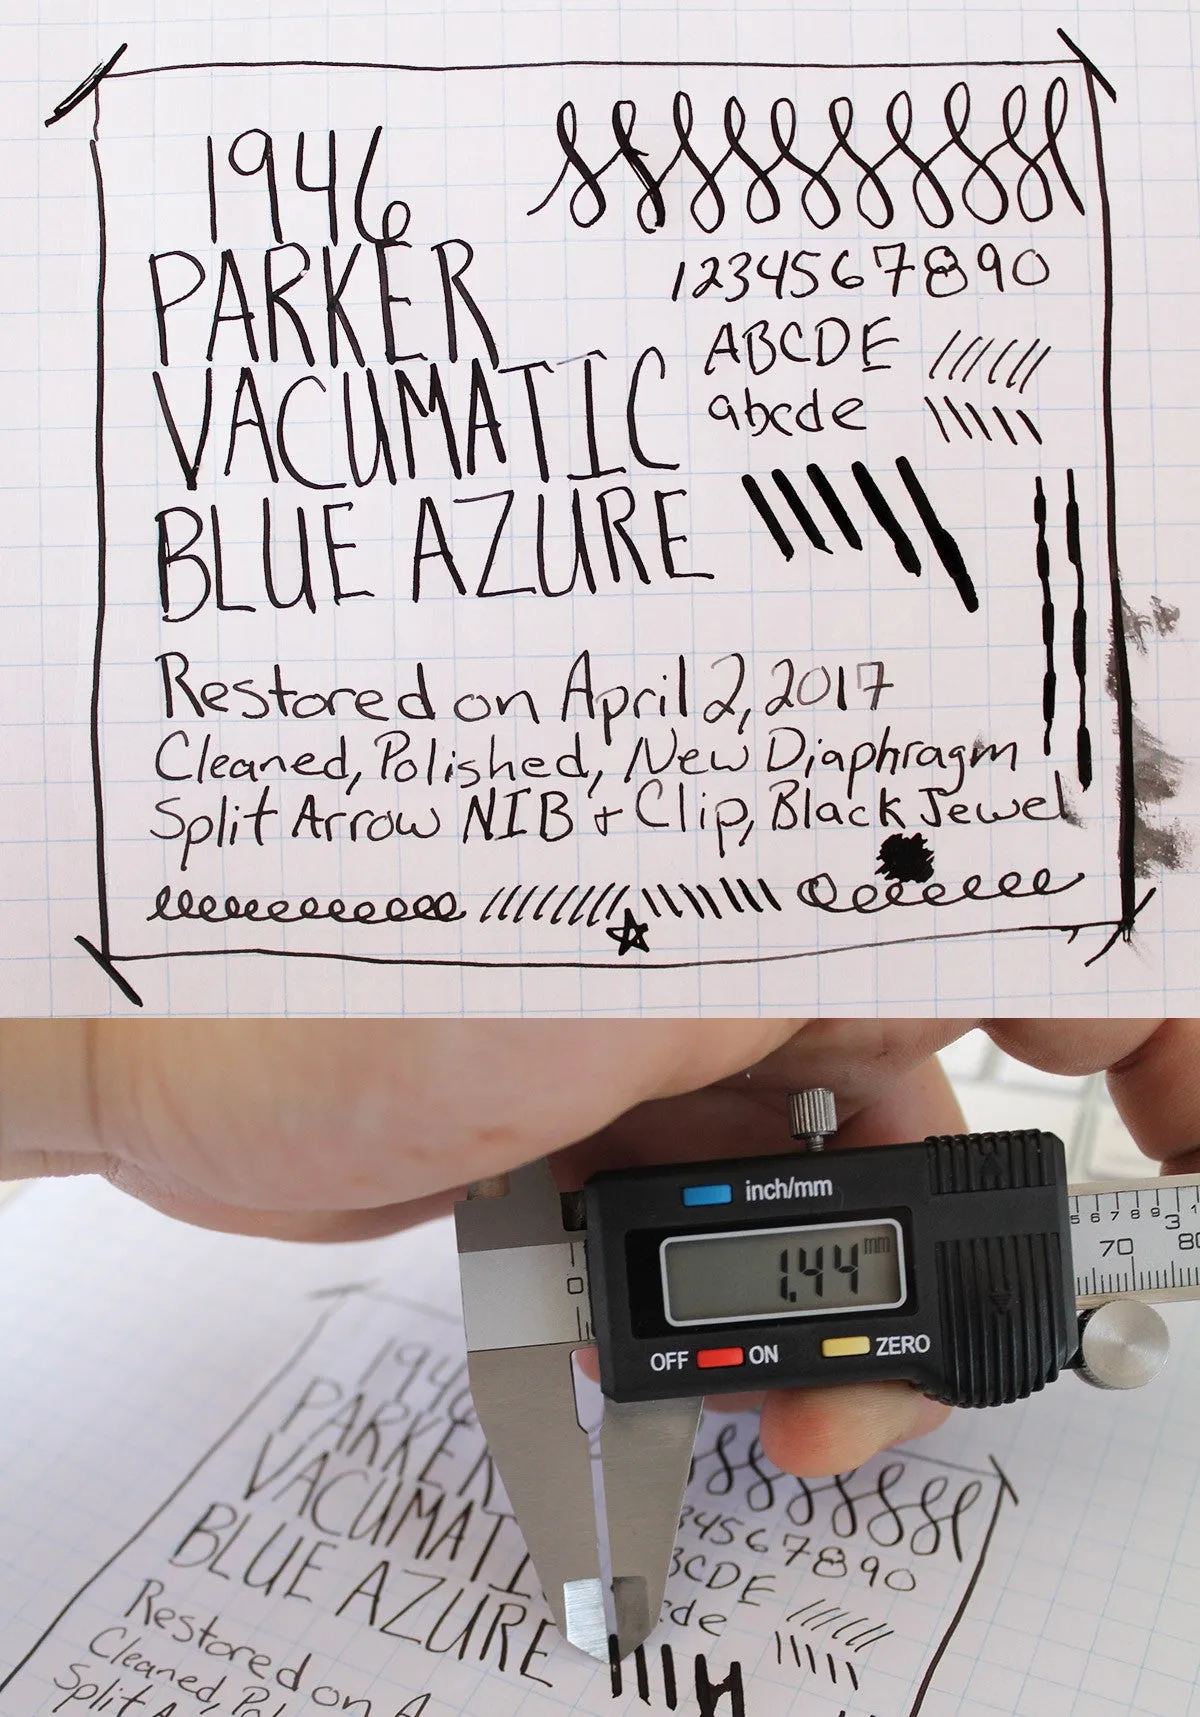 1946
PARKER
VACUMATIC
BLUE AZURE
1234567890
ABCDE
abcde
Restored on April 2, 2017
Cleaned, Polished, New Diaphragm
Split Arrow NIB + Clip, Black Jewel
inch/mm
1.44 mm
OFF ON ZERO
0
5 6 7 8 9 3 1
70 80
1946
PARKER
VACUMATI
BLUE AZURE
34567890
BCDE
cde
Restored on A
Cleaned, Pol
Split A